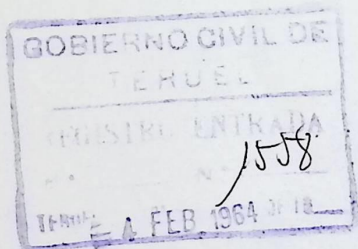 GOBIERNO CIVIL DE
TERUEL
REGISTRO ENTRADA
N.º 1558
TERUEL 4 FEB. 1964